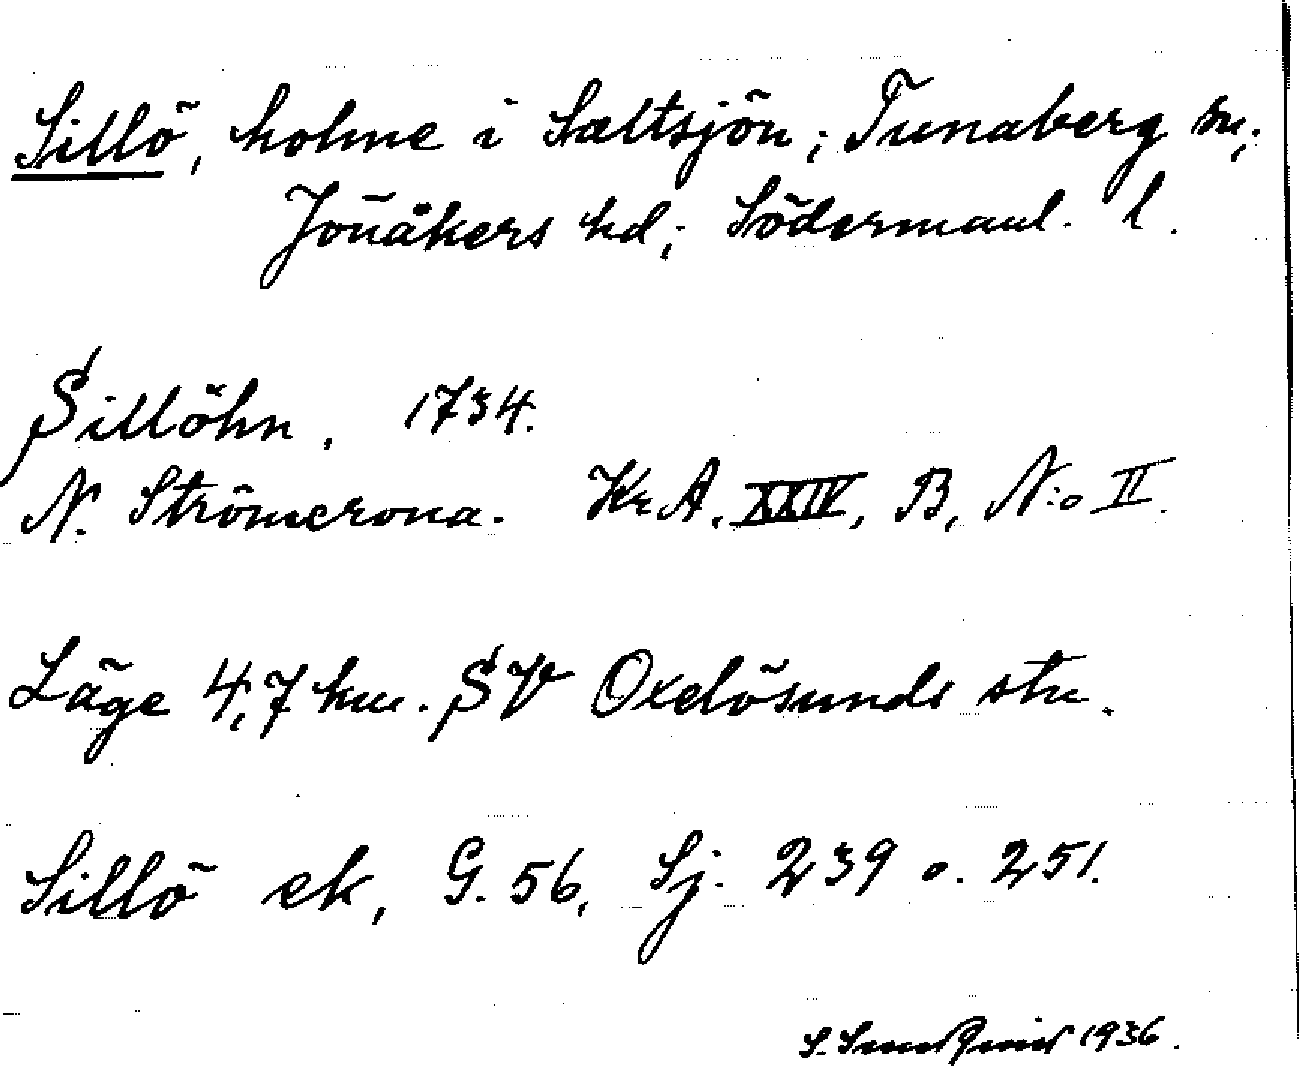 Sillö, holme i Saltsjön; Tunaberg sn;
Jönåkers hd; Södermanl. l.
Sillöhn. 1734.
N. Strömcrona. Kr.A. XXIV, B, N:o II.
Läge 4,7 km. SV Oxelösunds stn.
Sillö ek, G. 56, Sj. 239 o. 251.
S. Sundqvist 1936.